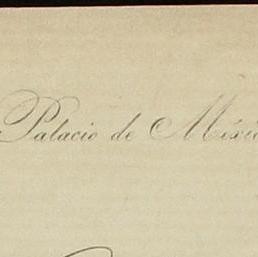 Palacio de Méxic